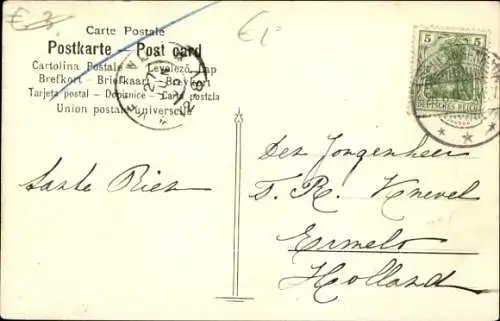 Carte Postale
Postkarte – Post card
Cartolina Postale – Levelező Lap
Brefkort – Briefkaart – Brevkort
Tarjeta postal – Dopisnice – Carte postala
Union postale universelle
5 5
DEUTSCHES REICH
27
Den Jongenheer
T. R. Knevel
Ermelo
Holland